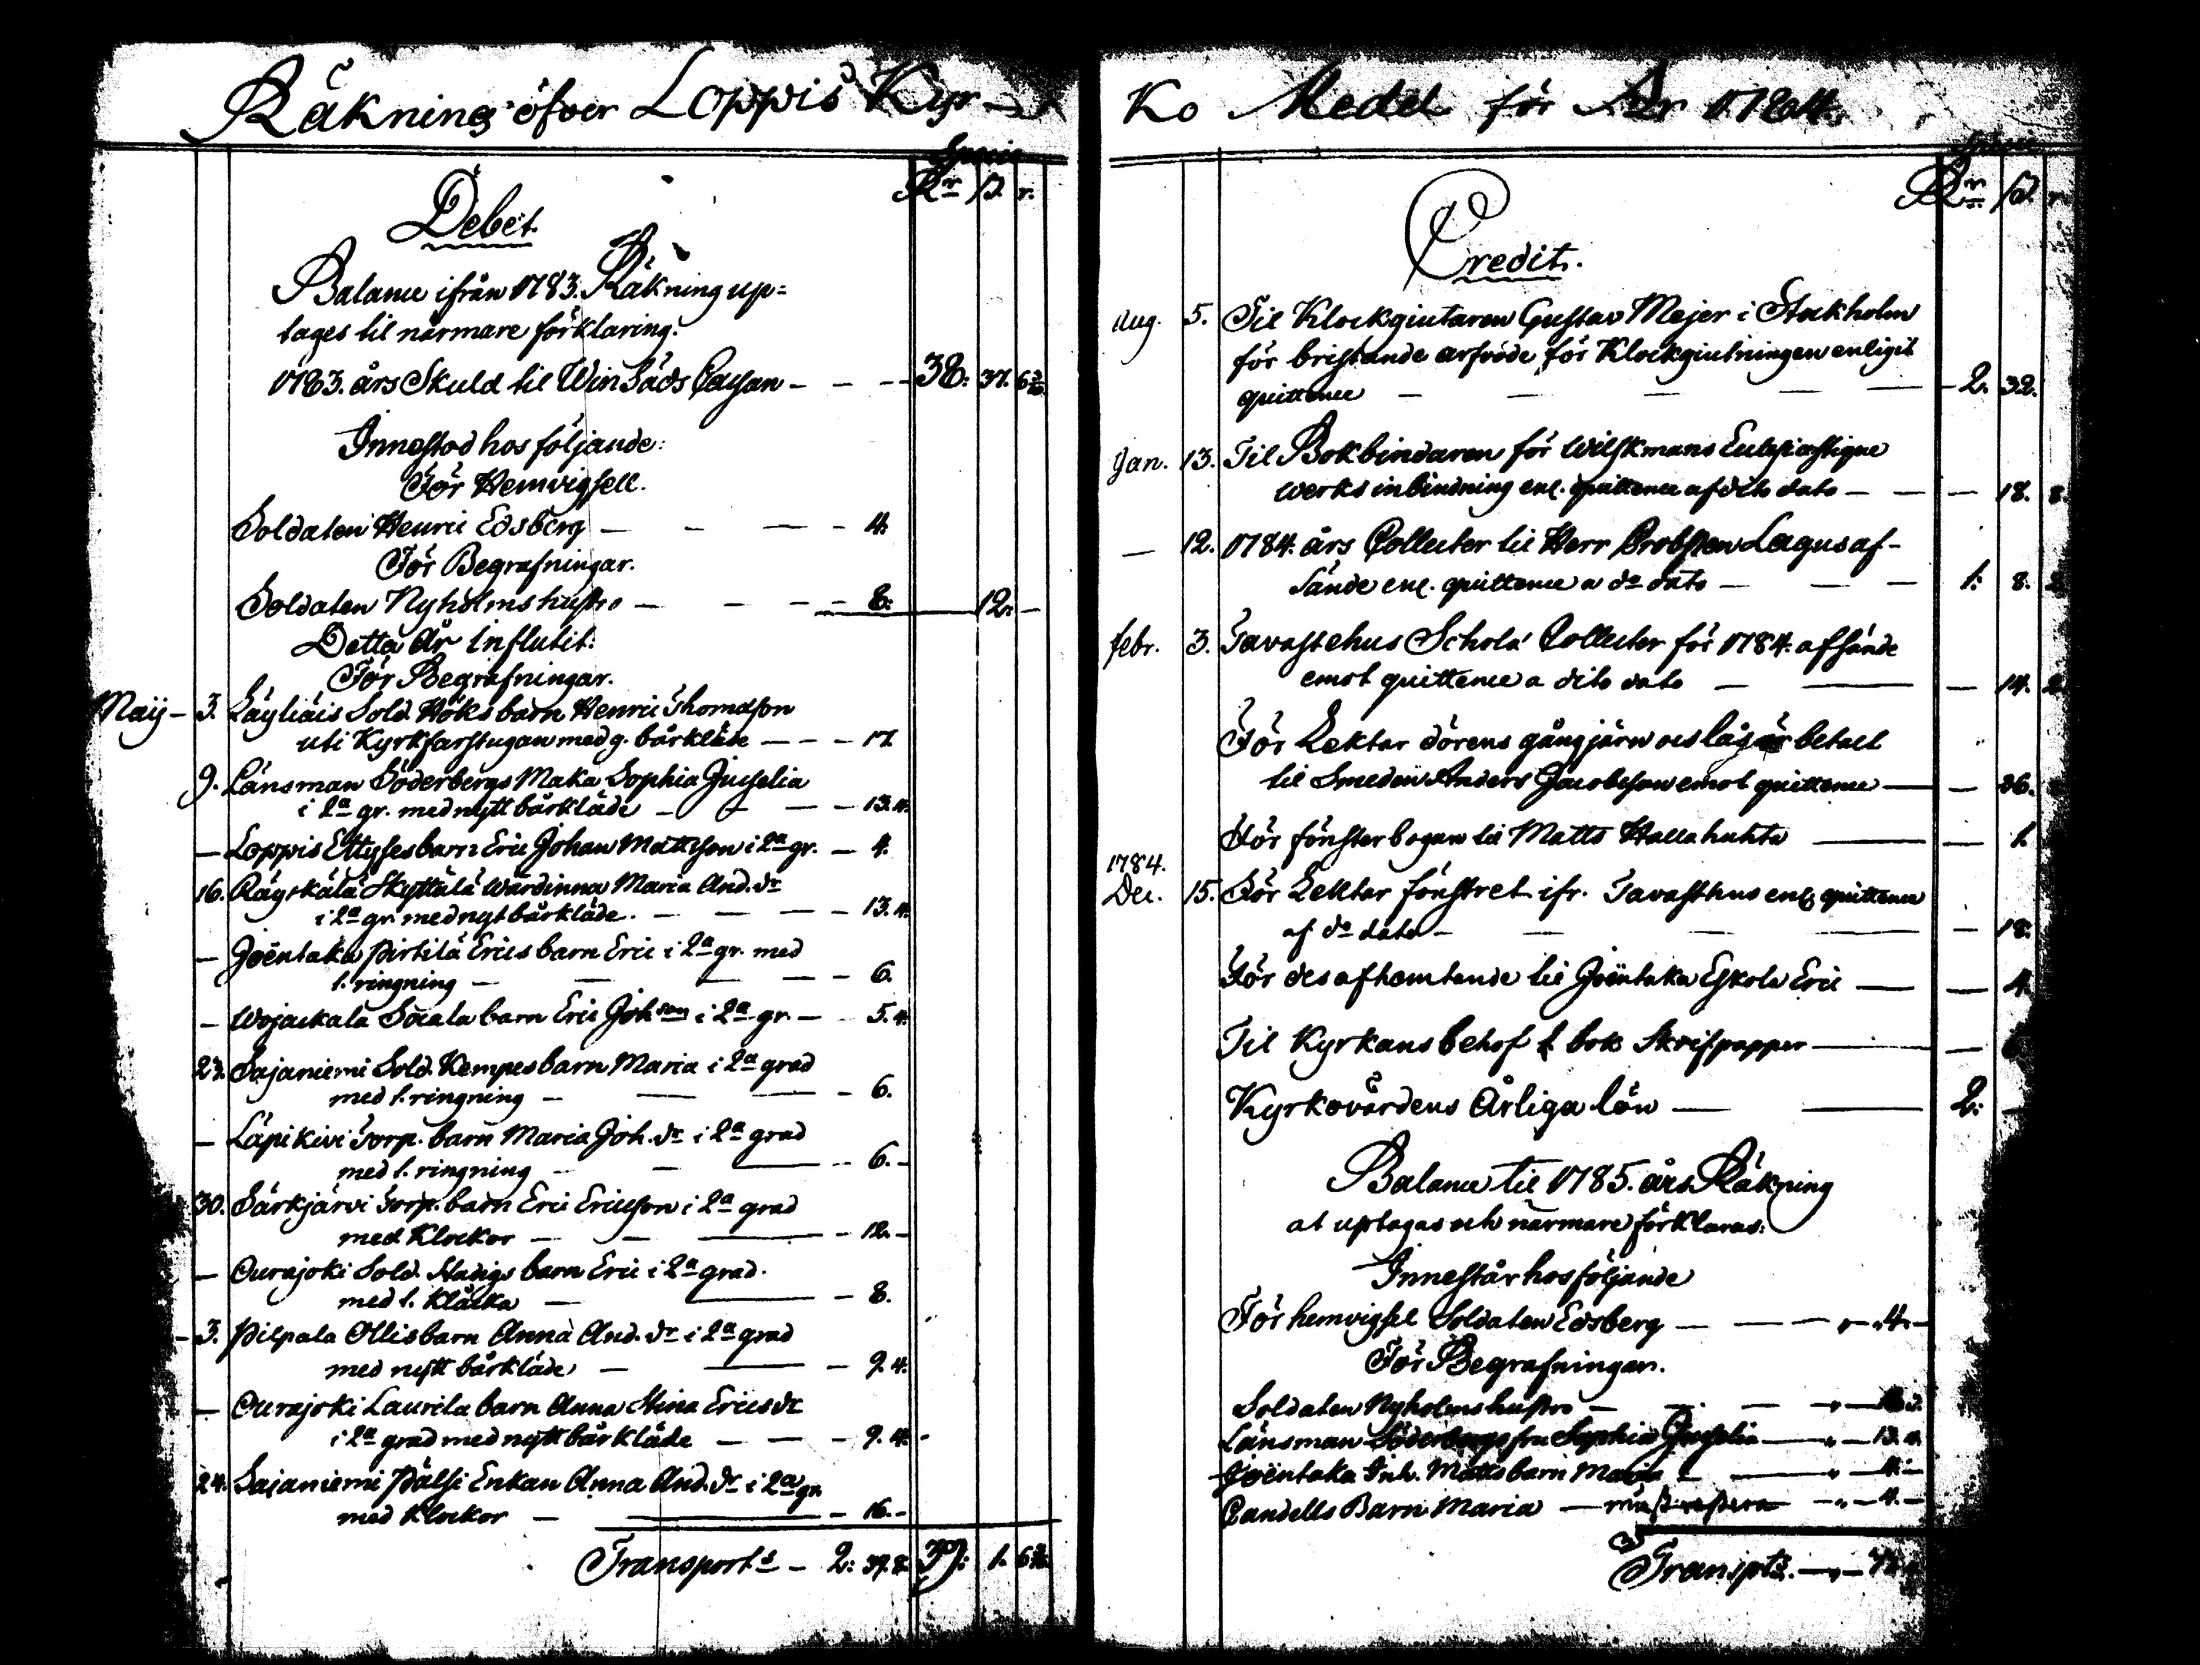 Räkning öfver Loppis Kyr-
Specie
Rr ß. r.
Debet.
Balance ifrån 1783. Räkning up=
tages til närmare förklaring:
1783. års Skuld til Winsäds Cassan - - - 38: 37. 6
Innestod hos följande:
För Hemvigsell.
Soldaten Henric Edsberg - - - 4.
För Begrafningar.
Soldaten Nyholms hustro - - - 8: 12: -
Detta År influtit:
För Begrafningar.
Maij - 3. Läyliäis Sold. Höks barn Henric Thomasson
uti Kyrkfarstugan med g. bårkläde - - - 17.
9. Länsman Söderbergs Maka Sophia Juselia
i 2a gr. med nytt bårkläde - - - 13. 4.
- Loppis Ettyses barn Eric Johan Mattsson i 2a gr. - 4.
16. Räyskälä Skyttälä Wärdinna Maria And. dr
i 2a gr. med nytt bårkläde. - - - 13. 4.
- Joëntaka Pirtilä Erics barn Eric i 2a gr. med
1. ringning - - - 6.
- Wojackala Sacala barn Eric Johson i 2a gr. - 5. 4.
27. Sajaniemi Sold. Kempes barn Maria i 2a grad
med 1. ringning - - - 6.
- Läpikivi Torp. barn Maria Joh. dr i 2a grad
med 1. ringning - - - 6. -
30. Särkjärvi Torp. barn Eric Ericsson i 2a grad
med Klockor - - - 12. -
- Ourajoki Sold. barn Eric i 2a grad.
med 1. klåcka - - 8.
- 3. Pilpala Ollis barn Anna And. dr i 2a grad
med nytt bårkläde - - 9. 4.
- Ourajoki Laurila barn Anna Stina Ericsdr
i 2a grad med nytt bårkläde - - - 9. 4. -
24. Sajaniemi Pälsi Enkan Anna And. dr i 2a gr.
med Klockor - - 16. -
Transport - 2: 37. 8. 39: 1. 6
Ko Medel för År 1784.
Rr ß. r.
Credit.
Aug. 5. Til Klockgiutaren Gustav Mejer i Stockholm
för bristande arfvode för Klockgiutningen enligit
quittence - - - 2. 32.
Jan. 13. Til Bokbindaren för Wilskmans Ecclesiastique
werks inbindning enl. quittence af dito dato - - - 18. 8.
- 12. 1784. års Collecter til Herr Probsten Lagus af-
sände enl. quittence a do dato - - - 1: 8. 2
febr. 3. Tavastehus Schola Collecter för 1784. afsände
emot quittence a dito dato - - - 14. 2
För Lektar dörens gångjärn och lås är betalt
til Smeden Anders Jacobsson emot quittence - - 36.
För fönster bogan til Matts Hallahuhta - - 1.
1784.
Dec. 15. För Lektar fönstret ifr. Tavasthus enl. quittence
af do dato - - - 18.
För des afhemtande til Joëntaka Eskola Eric - - 4.
Til Kyrkans behof 1 bok Skrifpapper - - 6
Kyrkovärdens Årliga lön - - 2: -
Balance til 1785. års Räkning
at uptagas och närmare förklaras:
Innestår hos följande
För hemvigsel Soldaten Edsberg - - - 4. -
För Begrafningar.
Soldaten Nyholms hustro - - -
Länsman Söderbergs fru Sophia Juselia - - 13. 4.
Joëntaka Inh. Matts barn Maria - - 4. -
Candells Barn Maria - - 4. -
Transpt. - -